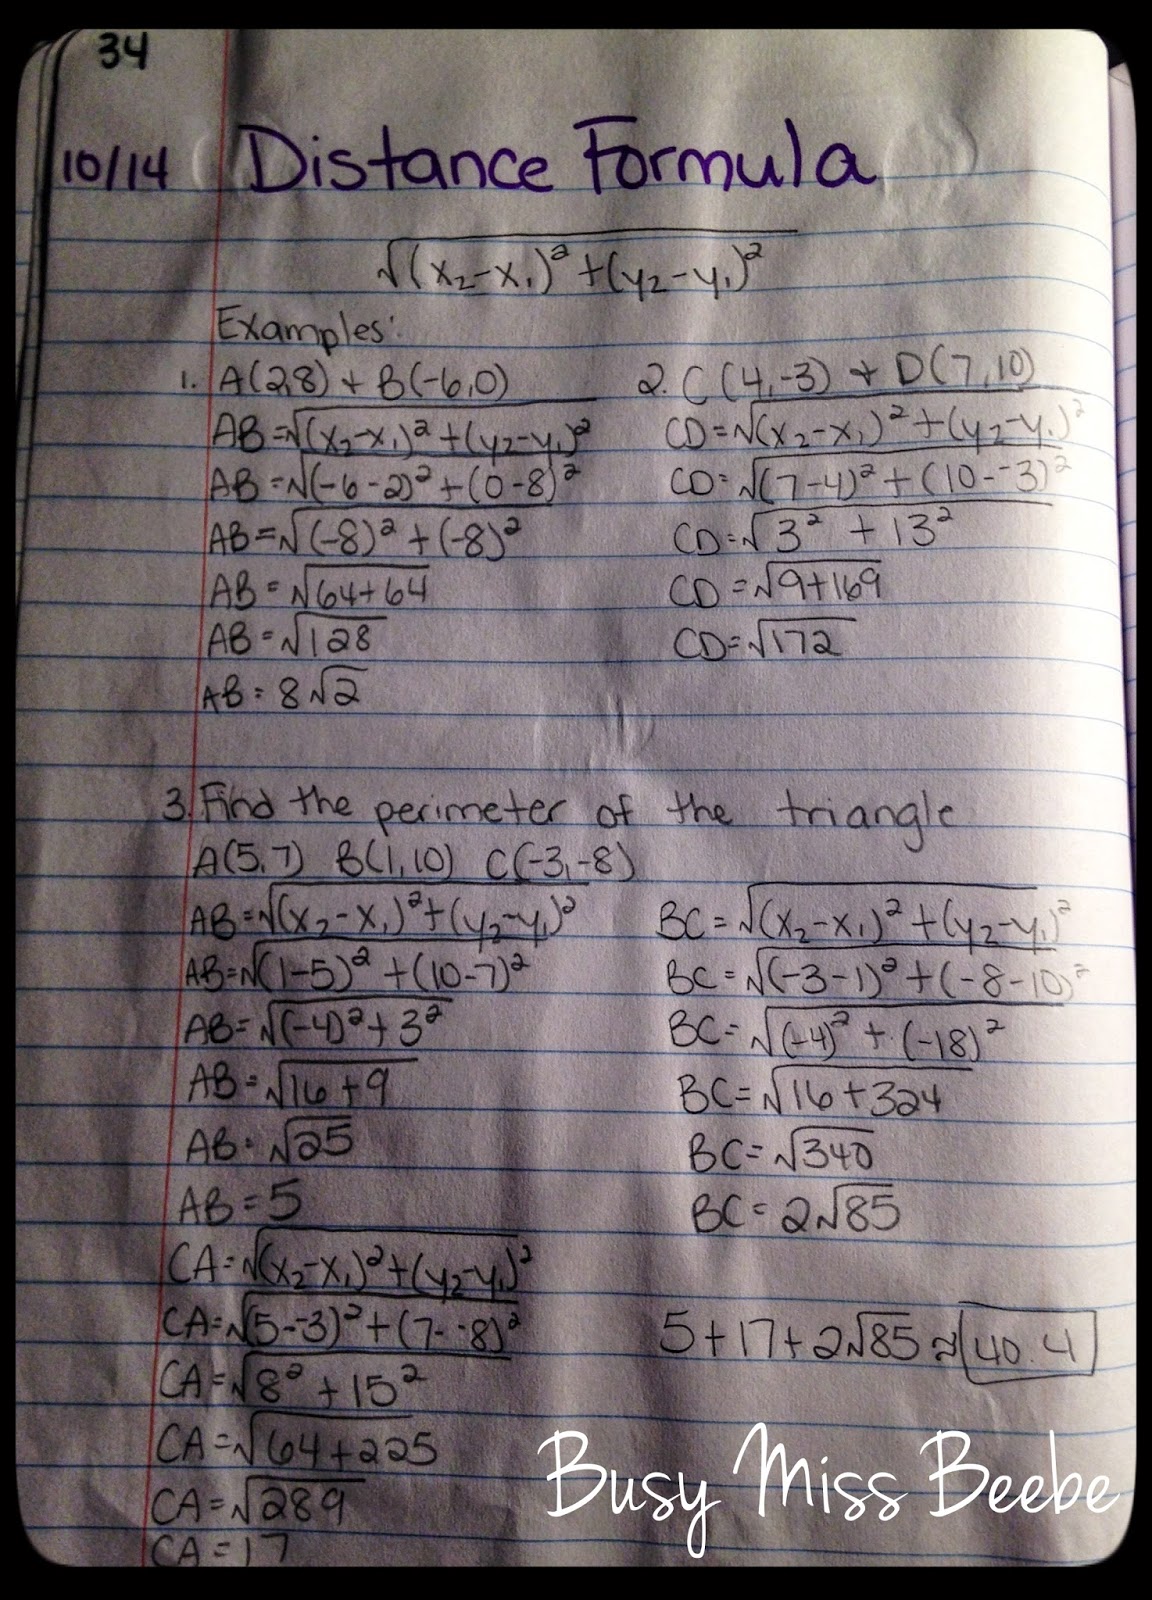 34
10/14 Distance Formula
√(x₂-x₁)²+(y₂-y₁)²
Examples:
1. A(2,8) + B(-6,0)
AB=√(x₂-x₁)²+(y₂-y₁)²
AB=√(-6-2)²+(0-8)²
AB=√(-8)²+(-8)²
AB=√64+64
AB=√128
AB=8√2
2. C(4,-3) + D(7,10)
CD=√(x₂-x₁)²+(y₂-y₁)²
CD=√(7-4)²+(10--3)²
CD=√3²+13²
CD=√9+169
CD=√172
3. Find the perimeter of the triangle
A(5,7) B(1,10) C(-3,-8)
AB=√(x₂-x₁)²+(y₂-y₁)²
AB=√(1-5)²+(10-7)²
AB=√(-4)²+3²
AB=√16+9
AB=√25
AB=5
BC=√(x₂-x₁)²+(y₂-y₁)²
BC=√(-3-1)²+(-8-10)²
BC=√(-4)²+(-18)²
BC=√16+324
BC=√340
BC=2√85
CA=√(x₂-x₁)²+(y₂-y₁)²
CA=√(5--3)²+(7--8)²
CA=√8²+15²
CA=√64+225
CA=√289
CA=17
5+17+2√85≈40.4
Busy Miss Beebe